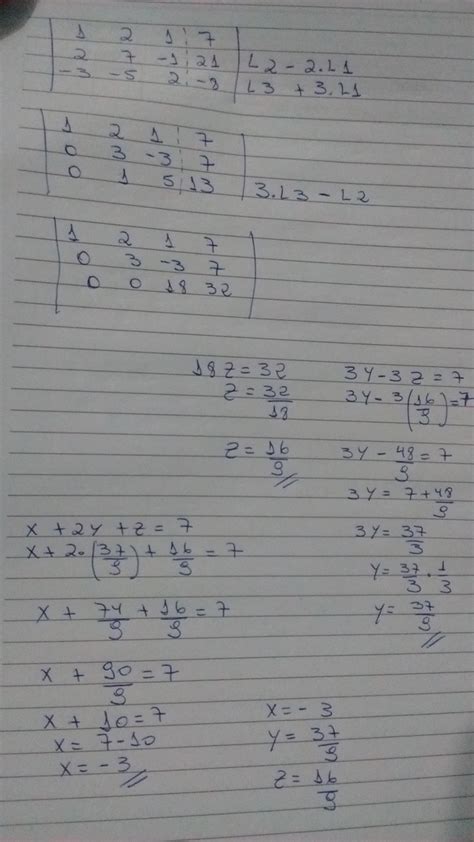 1 2 1 7
2 7 -1 21 L2 - 2.L1
-3 -5 2 -8 L3 + 3.L1
1 2 1 7
0 3 -3 7
0 1 5 13 3.L3 - L2
1 2 1 7
0 3 -3 7
0 0 18 32
18z = 32
z = 32/18
z = 16/9
3y - 3z = 7
3y - 3(16/9) = 7
3y - 48/9 = 7
3y = 7 + 48/9
3y = 37/3
y = 37/3 . 1/3
y = 37/9
x + 2y + z = 7
x + 2.(37/9) + 16/9 = 7
x + 74/9 + 16/9 = 7
x + 90/9 = 7
x + 10 = 7
x = 7 - 10
x = -3
x = -3
y = 37/9
z = 16/9